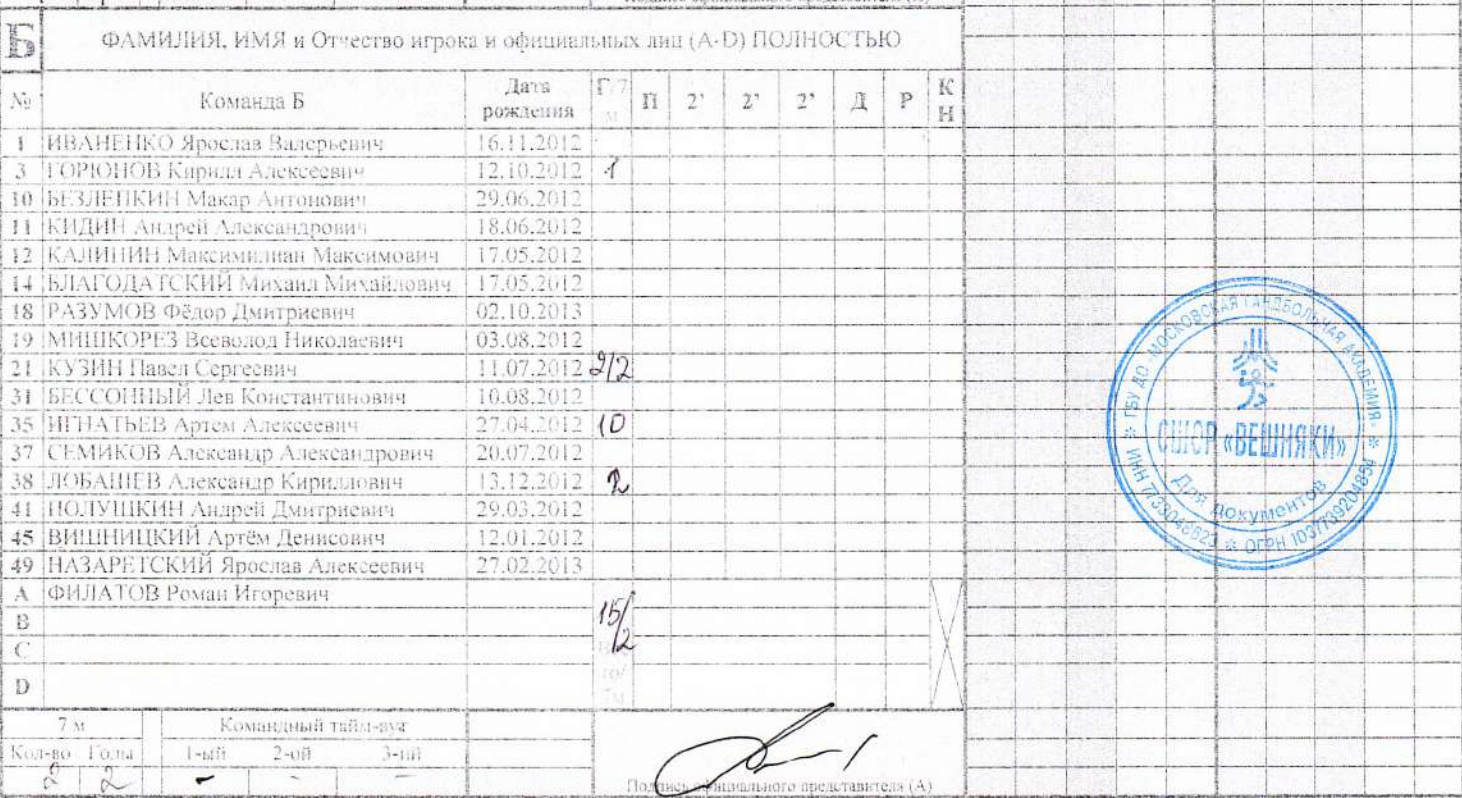 Б ФАМИЛИЯ, ИМЯ и Отчество игрока и официальных лиц (A-D) ПОЛНОСТЬЮ
№ Команда Б Дата рождения Г/7 м П 2' 2' 2' Д Р К Н
1 ИВАНЕНКО Ярослав Валерьевич 16.11.2012
3 ГОРЮНОВ Кирилл Алексеевич 12.10.2012 1
10 БЕЗЛЕПКИН Макар Антонович 29.06.2012
11 КИДИН Андрей Александрович 18.06.2012
12 КАЛИНИН Максимилиан Максимович 17.05.2012
14 БЛАГОДАТСКИЙ Михаил Михайлович 17.05.2012
18 РАЗУМОВ Фёдор Дмитриевич 02.10.2013
19 МИШКОРЕЗ Всеволод Николаевич 03.08.2012
21 КУЗИН Павел Сергеевич 11.07.2012 2/2
31 БЕССОННЫЙ Лев Константинович 10.08.2012
35 ИГНАТЬЕВ Артем Алексеевич 27.04.2012 10
37 СЕМИКОВ Александр Александрович 20.07.2012
38 ЛОБАШЕВ Александр Кириллович 13.12.2012 2
41 ПОЛУШКИН Андрей Дмитриевич 29.03.2012
45 ВИШНИЦКИЙ Артём Денисович 12.01.2012
49 НАЗАРЕТСКИЙ Ярослав Алексеевич 27.02.2013
A ФИЛАТОВ Роман Игоревич
B 15/2
C
D
7 м Командный тайм-аут
Кол-во Голы 1-ый 2-ой 3-ий
2 2 - - -
Подпись официального представителя (А)
ГБУ ДО "МОСКОВСКАЯ ГАНДБОЛЬНАЯ АКАДЕМИЯ"
СШОР «ВЕШНЯКИ»
Для документов